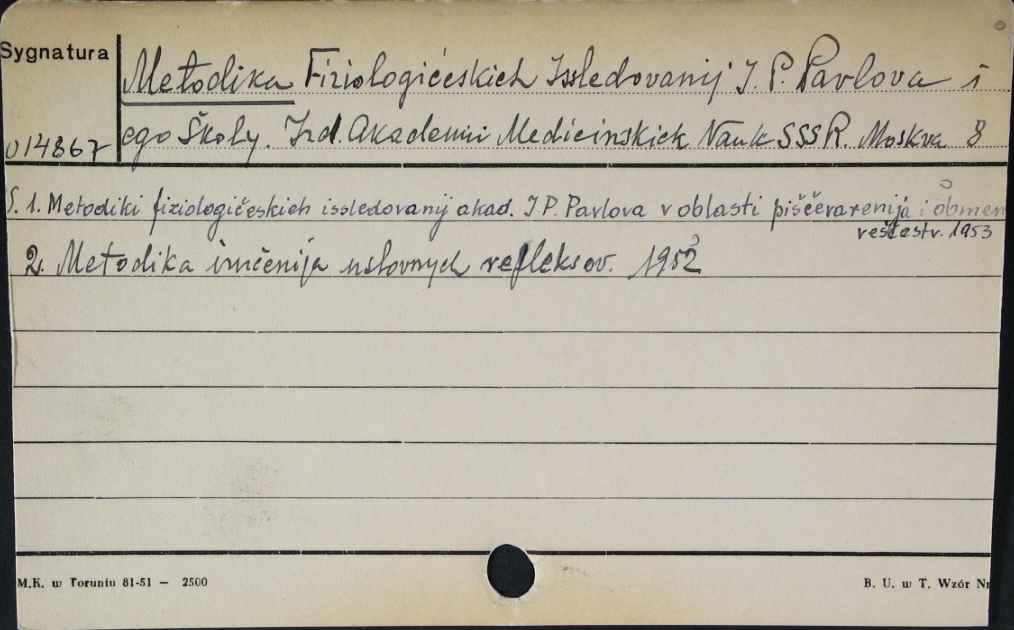 Sygnatura
Metodika Fiziologičeskich Issledovanij I. P. Pavlova i
ego Školy. Izd. Akademii Medicinskich Nauk SSSR. Moskva 8
014867
S. 1. Metodiki fiziologičeskich issledovanij akad. I.P. Pavlova v oblasti piščevarenija i obmen
veščestv. 1953
2. Metodika izučenija uslovnych refleksov. 1952
M.K. w Toruniu 81-51 — 2500
B. U. w T. Wzór Nr